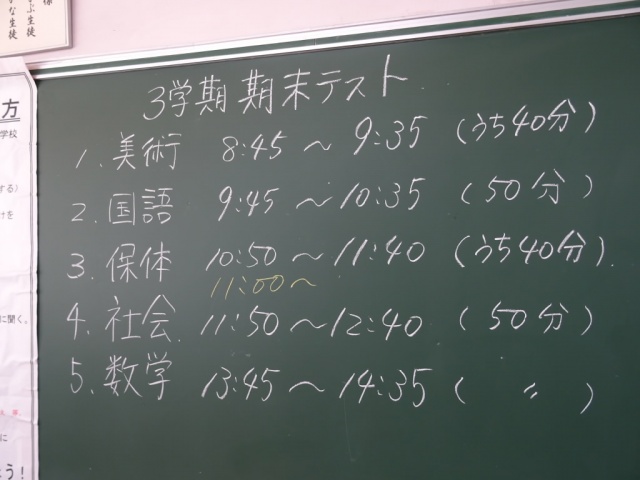 様
ぶ生徒
な生徒
方
学校
する)
けを
に聞く。
に
う!
3学期 期末テスト
1. 美術 8:45 ~ 9:35 (うち40分)
2. 国語 9:45 ~ 10:35 (50分)
3. 保体 10:50 ~ 11:40 (うち40分).
11:00~
4. 社会 11:50 ~ 12:40 (50分)
5. 数学 13:45 ~ 14:35 ( 〃 )